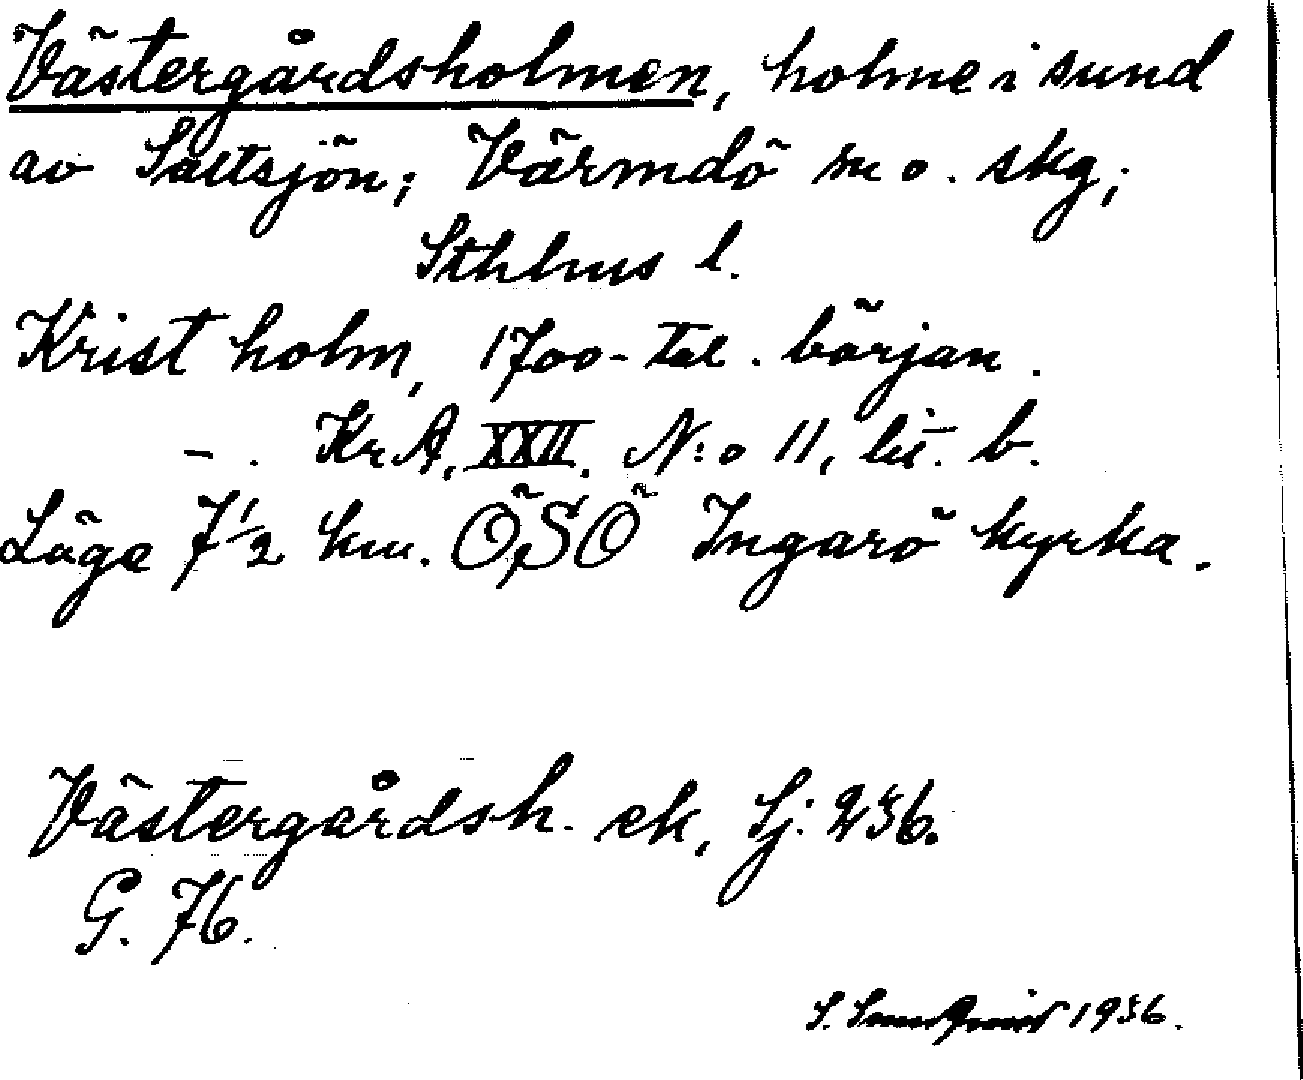 Västergårdsholmen, holme i sund
av Saltsjön; Värmdö sn o. skg;
Sthlms l.
Krist holm, 1700-tal. början.
-. KrA, XXII. N:o 11, lit. b.
Läge 7 1/2 km. ÖSÖ Ingarö kyrka.
Västergårdsh. ek, Sj: 236.
G. 76.
S. 1936.